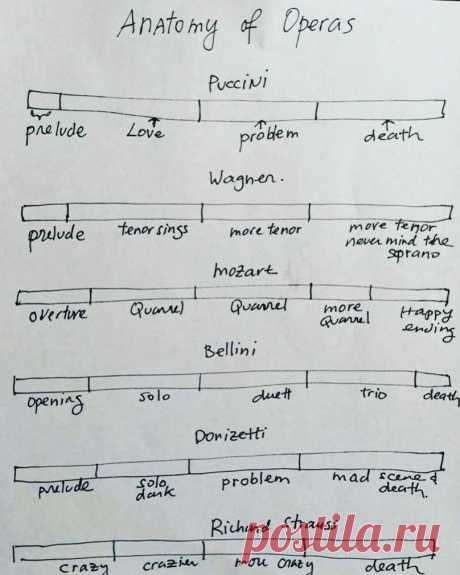 Anatomy of Operas
Puccini
prelude Love problem death
Wagner.
prelude tenor sings more tenor more tenor
never mind the
soprano
Mozart
overture Quarrel Quarrel more
Quarrel Happy
ending
Bellini
opening solo duett trio death
Donizetti
prelude solo,
dark problem mad scene &
death.
Richard Strauss
crazy crazier more crazy death
postila.ru